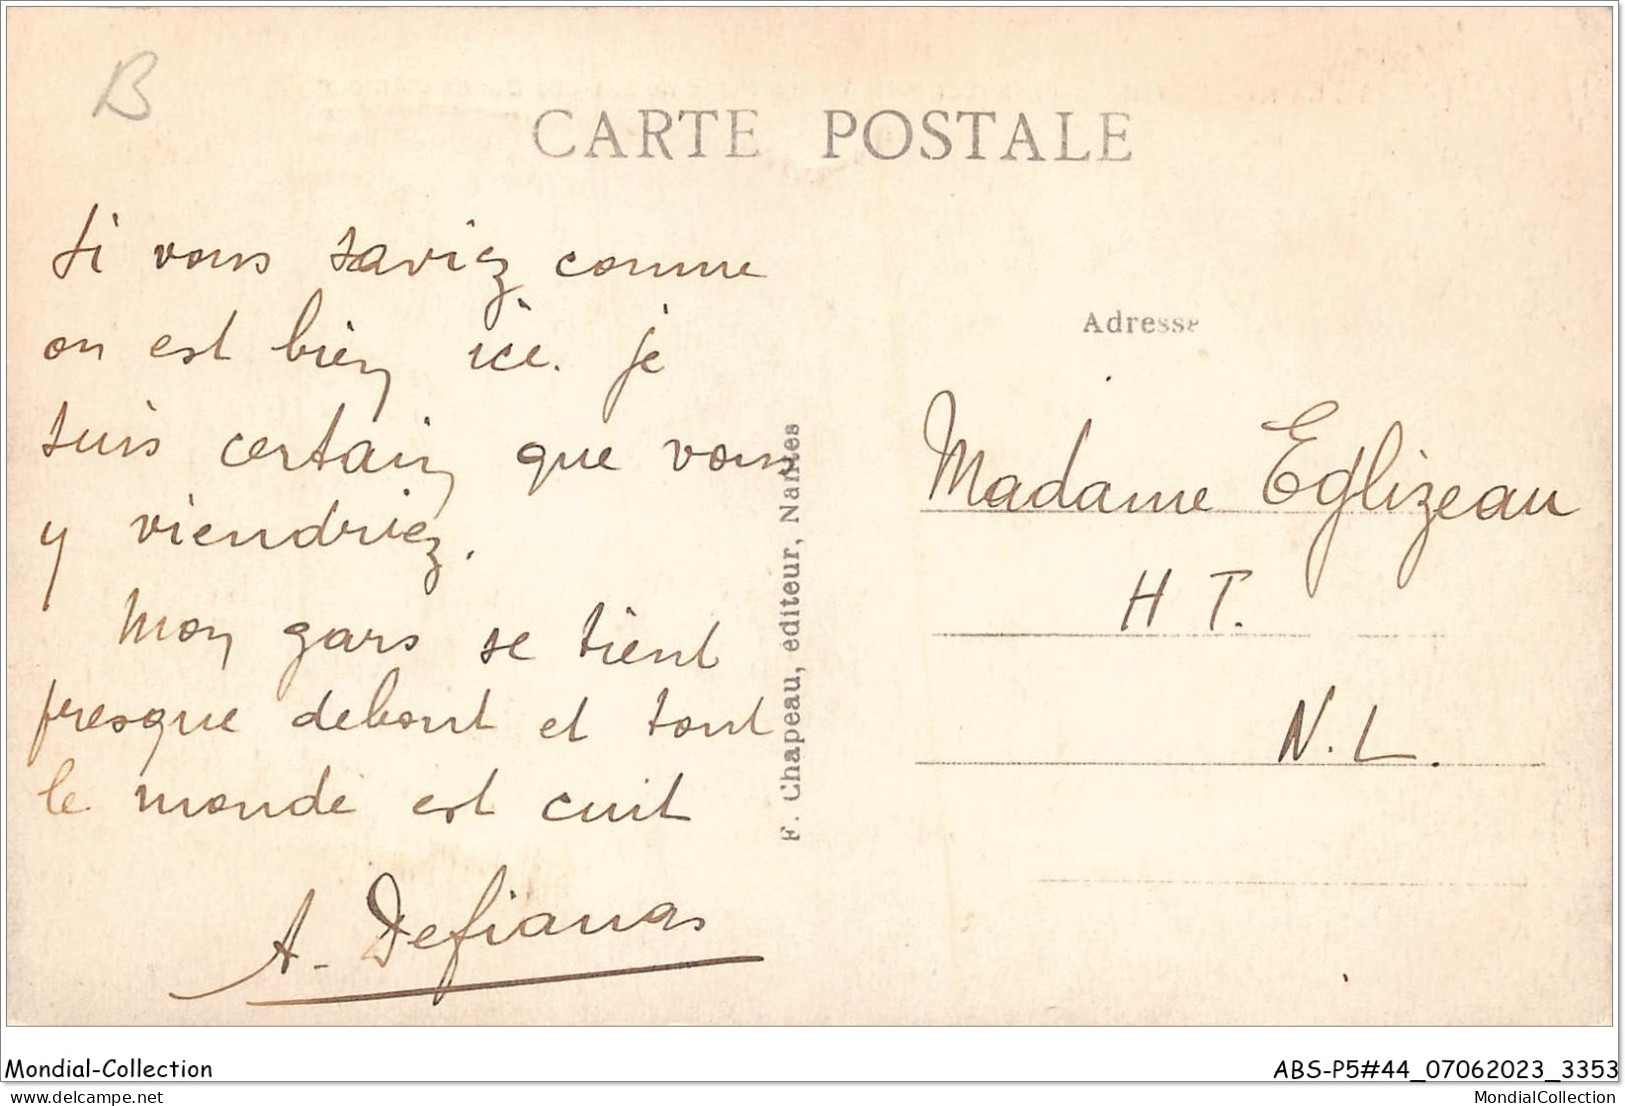 B
CARTE POSTALE
Si vous saviez comme
on est bien ici. je
suis certain que vous
y viendriez.
Mon gars se tient
presque debout et tout
le monde est cuit
A.
F. Chapeau, éditeur, Nantes
Adresse
Madame Eglizeau
H T.
N. L.
Mondial-Collection
ABS-P5#44_07062023_3353
delcampe.net
MondialCollection